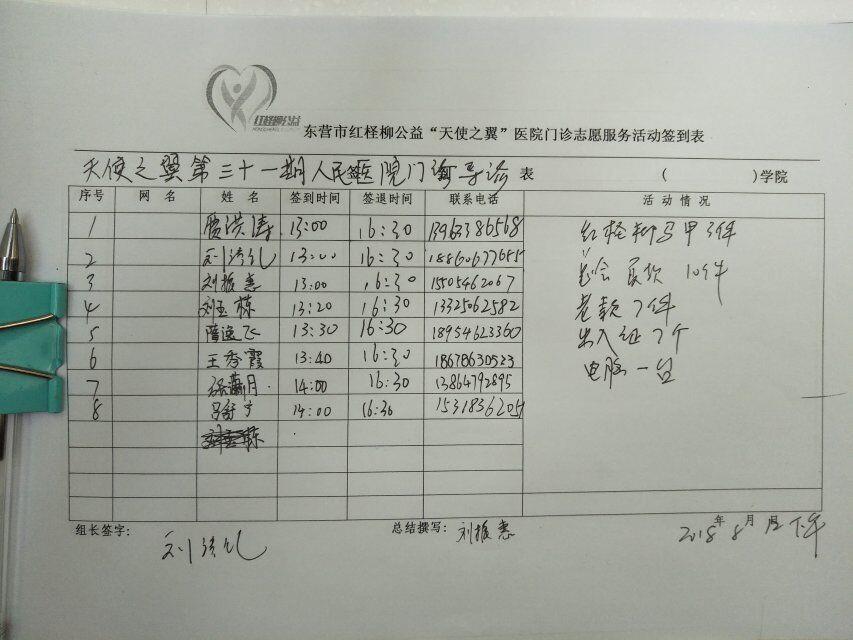 红柽柳公益
东营市红柽柳公益“天使之翼”医院门诊志愿服务活动签到表
天使之翼第三十一期人民医院门诊导诊 表 ( )学院
序号 网名 姓名 签到时间 签退时间 联系电话 活动情况
1 贾洪涛 13:00 16:30 13963386568
红柽柳马甲 件
2 刘 13:00 16:30
10件
3 刘振惠 13:00 16:30 15505462067
4 刘玉栋 13:20 16:30 13325062582
老款7件
5 隋逸飞 13:30 16:30 18954623360
出入证7个
6 王秀霞 13:40 16:30 18678630523
电脑一台
7 张 月 14:00 16:30 13864792895
8 吕 宁 14:00 16:30
组长签字: 刘 总结撰写: 刘振惠 2018年8月 日下午